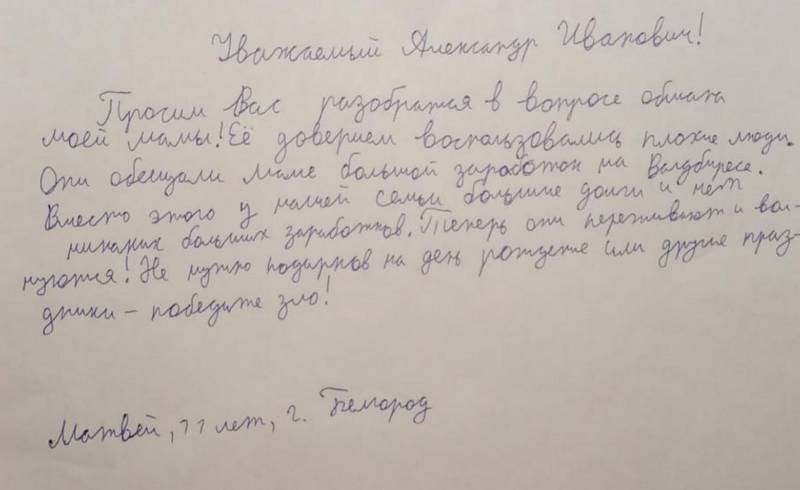 Уважаемый Александр Иванович!
Просим Вас разобратся в вопросе обмана
моей мамы! Её доверием воспользовались плохие люди.
Они обещали маме большой заработок на Валдбиресе.
Вместо этого у нашей семьи большие долги и нет
никаких больших заработков. Теперь они переживают и вол-
нуются! Не нужно подарков на день рождение или другие праз-
дники - победите зло!
Матвей, 11 лет, г. Белгород